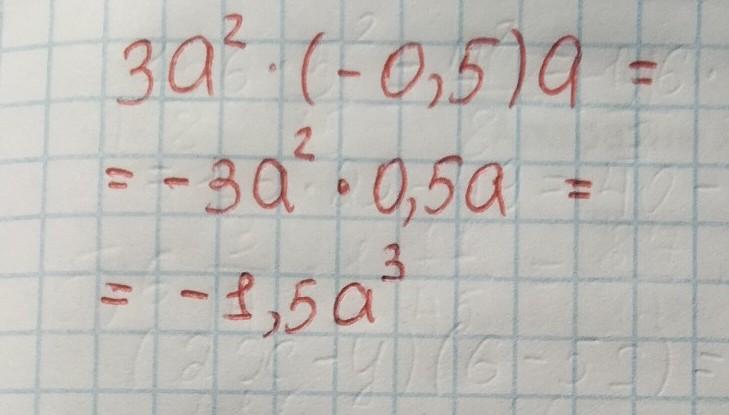 3a² · (-0,5)a =
= -3a² · 0,5a =
= -1,5a³